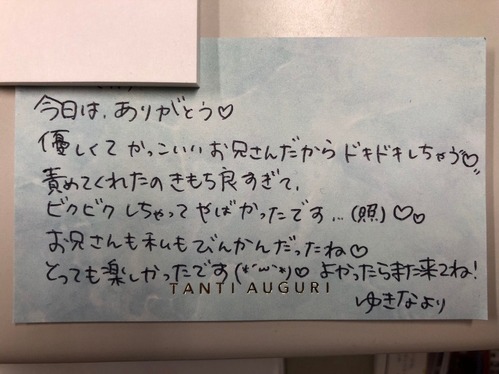 今日は、ありがとう♡
優しくてかっこいいお兄さんだからドキドキしちゃう♡"
責めてくれたのきもち良すぎて、
ビクビクしちゃってやばかったです…(照)♡♡
お兄さんも私もびんかんだったね♡
とっても楽しかったです(*´ω`*)♡ よかったらまた来てね!
TANTI AUGURI
ゆきなより